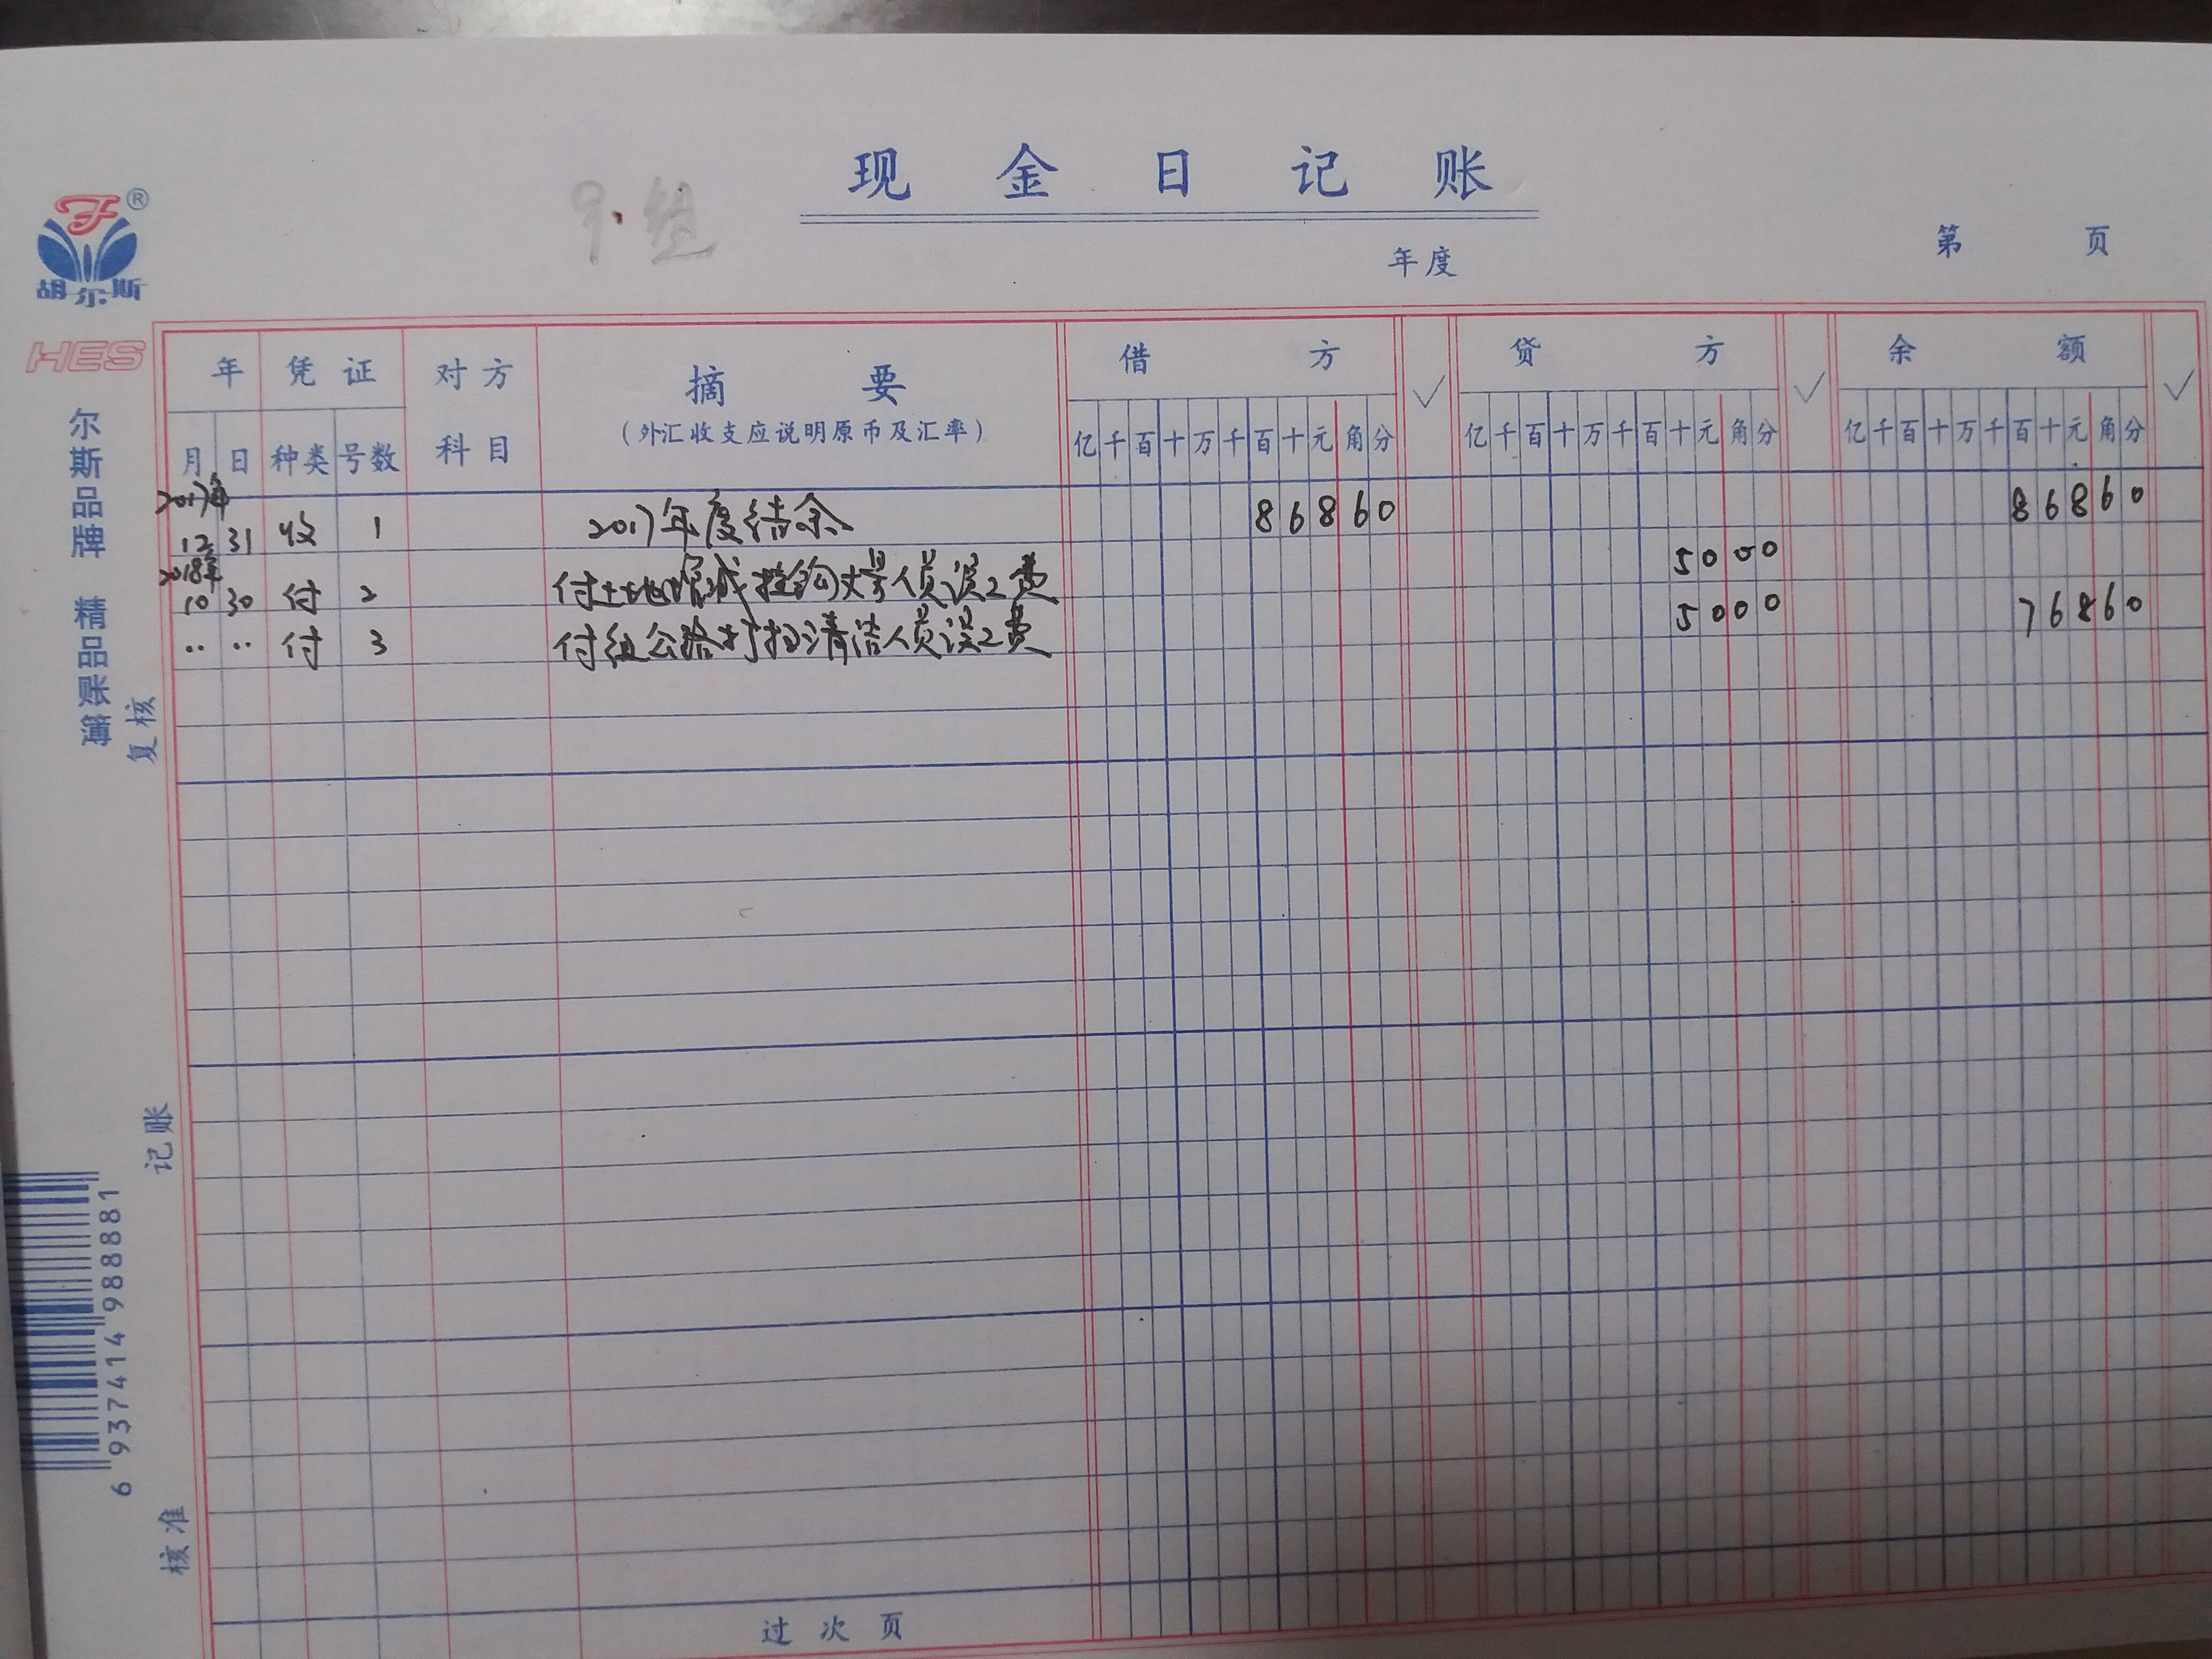 现金日记账
9.组
年度
第 页
胡尔斯
HES
尔斯品牌 精品账簿
年 凭证 对方科目 摘要 借方 ✓ 贷方 ✓ 余额 ✓
(外汇收支应说明原币及汇率)
月 日 种类 号数 亿千百十万千百十元角分 亿千百十万千百十元角分 亿千百十万千百十元角分
2017年
12 31 收 1 2017年度结余 86860 86860
2018年
10 30 付 2 付土地增减挂钩丈量人员误工费 5000
‥ ‥ 付 3 付组公路打扫清洁人员误工费 5000 76860
复核
记账
核准
6 937414 988881
过次页